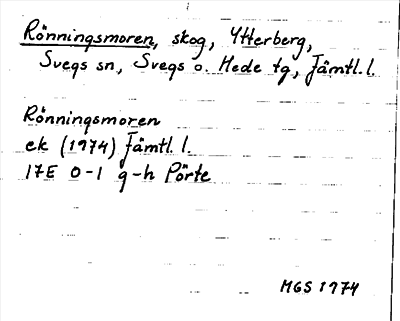 Rönningsmoren, skog, Ytterberg,
Svegs sn, Svegs o. Hede tg, Jämtl. l.
Rönningsmoren
ek (1974) Jämtl. l.
17E 0-1 g-h Pörte
MGS 1974